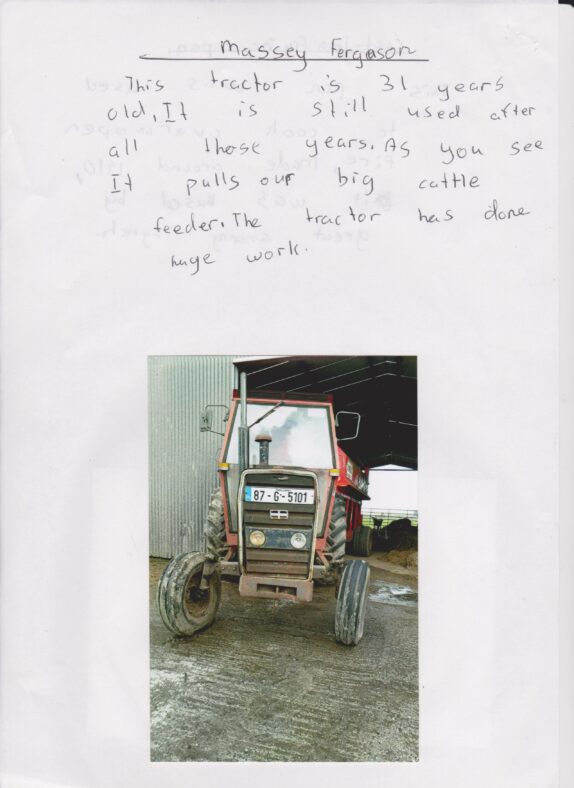 Massey Ferguson
This tractor is 31 years
old, It is still used after
all those years. As you see
It pulls our big cattle
feeder. The tractor has done
huge work.
87-G-5101